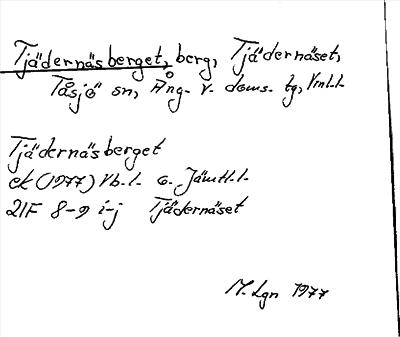 Tjädernäsberget, berg, Tjädernäset,
Tåsjö sn, Ång. v. doms. tg, Vnl.l.
Tjädernäsberget
ek (1977) Vb.l. o. Jämtl.l.
21F 8-9 i-j Tjädernäset
M. Lgn 1977